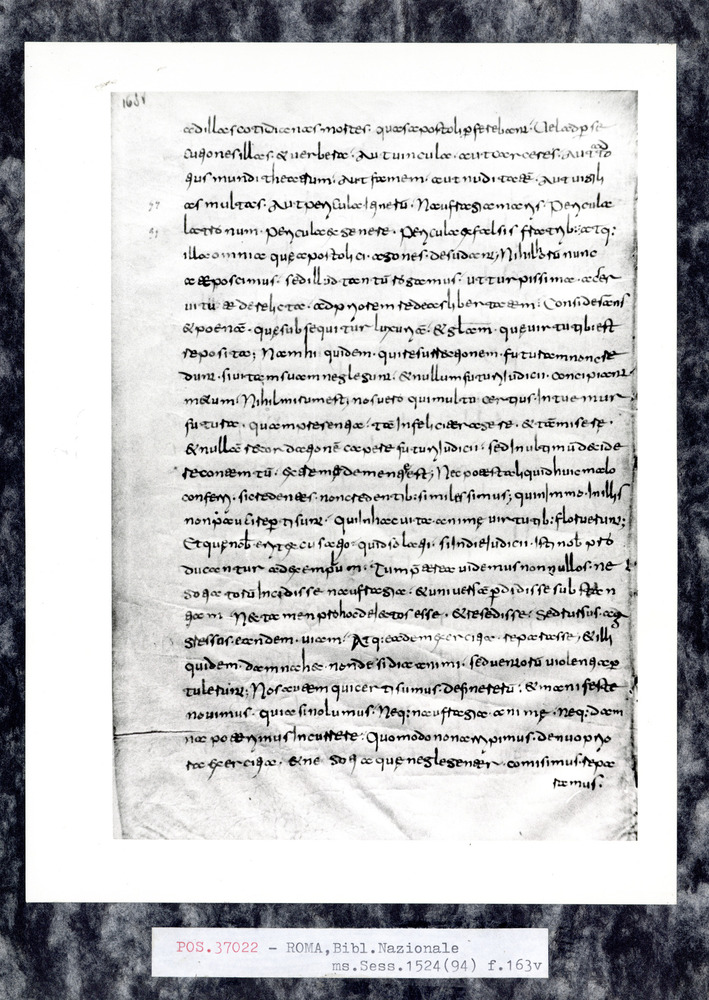 163v
ad illas cotidianas mortes. quas apostoli pferebant. Uel ad pse
cutiones illas. & uerbera. Aut uincula. aut carceres. Aut ad to
tius mundi theatrum. Aut famem. aut nuditatē. Aut uigili
as multas. Aut pericula itinerū. Naufragia maris. Pericula
latronum. Pericula ex genere. Pericula ex falsis fratrib: atq:
illa omnia que apostolica agones. desudant; Nihil & tū nunc
a te poscimus. sed illud tantū rogamus. ut turpissima
uitū & derelicta. ad priorem te deas libertatem. Considerans
& poenā. quę subsequitur luxuriā. & gloriam. quę uirtutib; est
reposita; Nam hi quidem. qui resurrectionem. futuram non cre
dunt. si uitam suam neglegunt. & nullum futuri iudicii. concipiunt
metum. Nihil mirum est; nos uero qui multo certius. Intuemur
futura. quam praesentia. tā infeliciter agere. & tā misere.
& nullā recordationē capere futuri iudicii. sed In ultimū decide
re
conferri. si credentes. non credentib: similes simus; quin immo. In illis
non pauci reperti sunt. qui In hac uita animę uirtutib: floruerunt;
Et quę nob erit excusatio. quid solacii. si In die Iudicii. Isti nob pro
ducantur ad exemplum. Tum praeterea uidemus nonnullos. ne
gotiatorū Incidisse naufragia. & uniuersa pdidisse substan
tiam. Nec tamen pro hoc delatos esse. & resedisse. Sed rursus.
gressus eandem. uiam. Atq: eadem exercitia. reparasse; & illi
quidem. damna haec. non desidia animi. sed uentorū uiolentia p
tulerunt; Nos autem qui certi sumus. de fine rerū. & manifeste
nouimus. quia si nolumus. Neq: naufragia animę. neq: dam
na poterimus Incurrere. Quomodo non arripimus. denuo prio
ra exercitia. & ne gotia quę neglegenter. comisimus. repa
ramus.
POS.37022 - ROMA,Bibl.Nazionale
ms.Sess.1524(94) f.163v